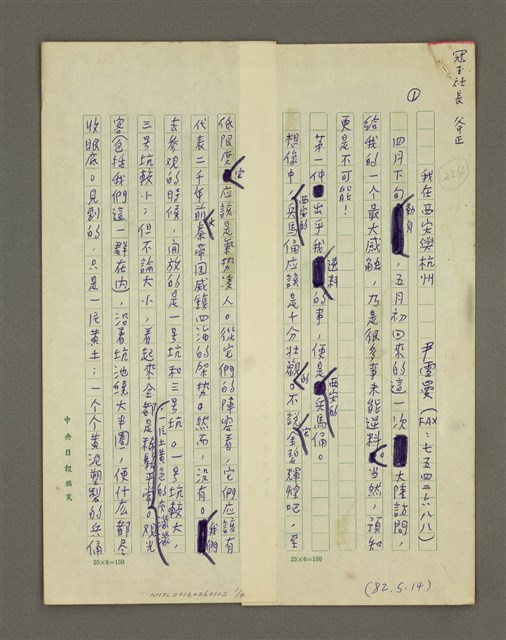 冠玉社長 斧正
①
(224)
我在西安與杭州 尹雪曼(FAX:七五四二六八八)
四月下旬動身，五月初回來的這一次大陸訪問，
給我的一个最大感觸，乃是很多事未能逆料。當然，預知
更是不可能！
第一件出乎我逆料的事，便是西安的兵馬俑。
想像中，西安的兵馬俑應該是十分壯觀的。不說它金碧輝煌吧，至
低限度它應該是氣勢凌人。從它們的陣容看，它們應該有
代表二千年前秦帝国威鎮四海的架势。然而，沒有。我們
去参观的時候，開放的是一号坑和三号坑。一号坑較大，
三号坑較小；但不論大小，看起來全都是稀鬆平常。一片土黄色的灰濛濛。观光
客(包括我們這一群在内)，沿着坑池繞大半圈，便什么都尽
收眼底。見到的，只是一片黄土；一个个黄泥塑製的兵俑
中央日報稿箋
25×6=150
25×6=150
NMTL20160260102 1/4
(82.5.14)